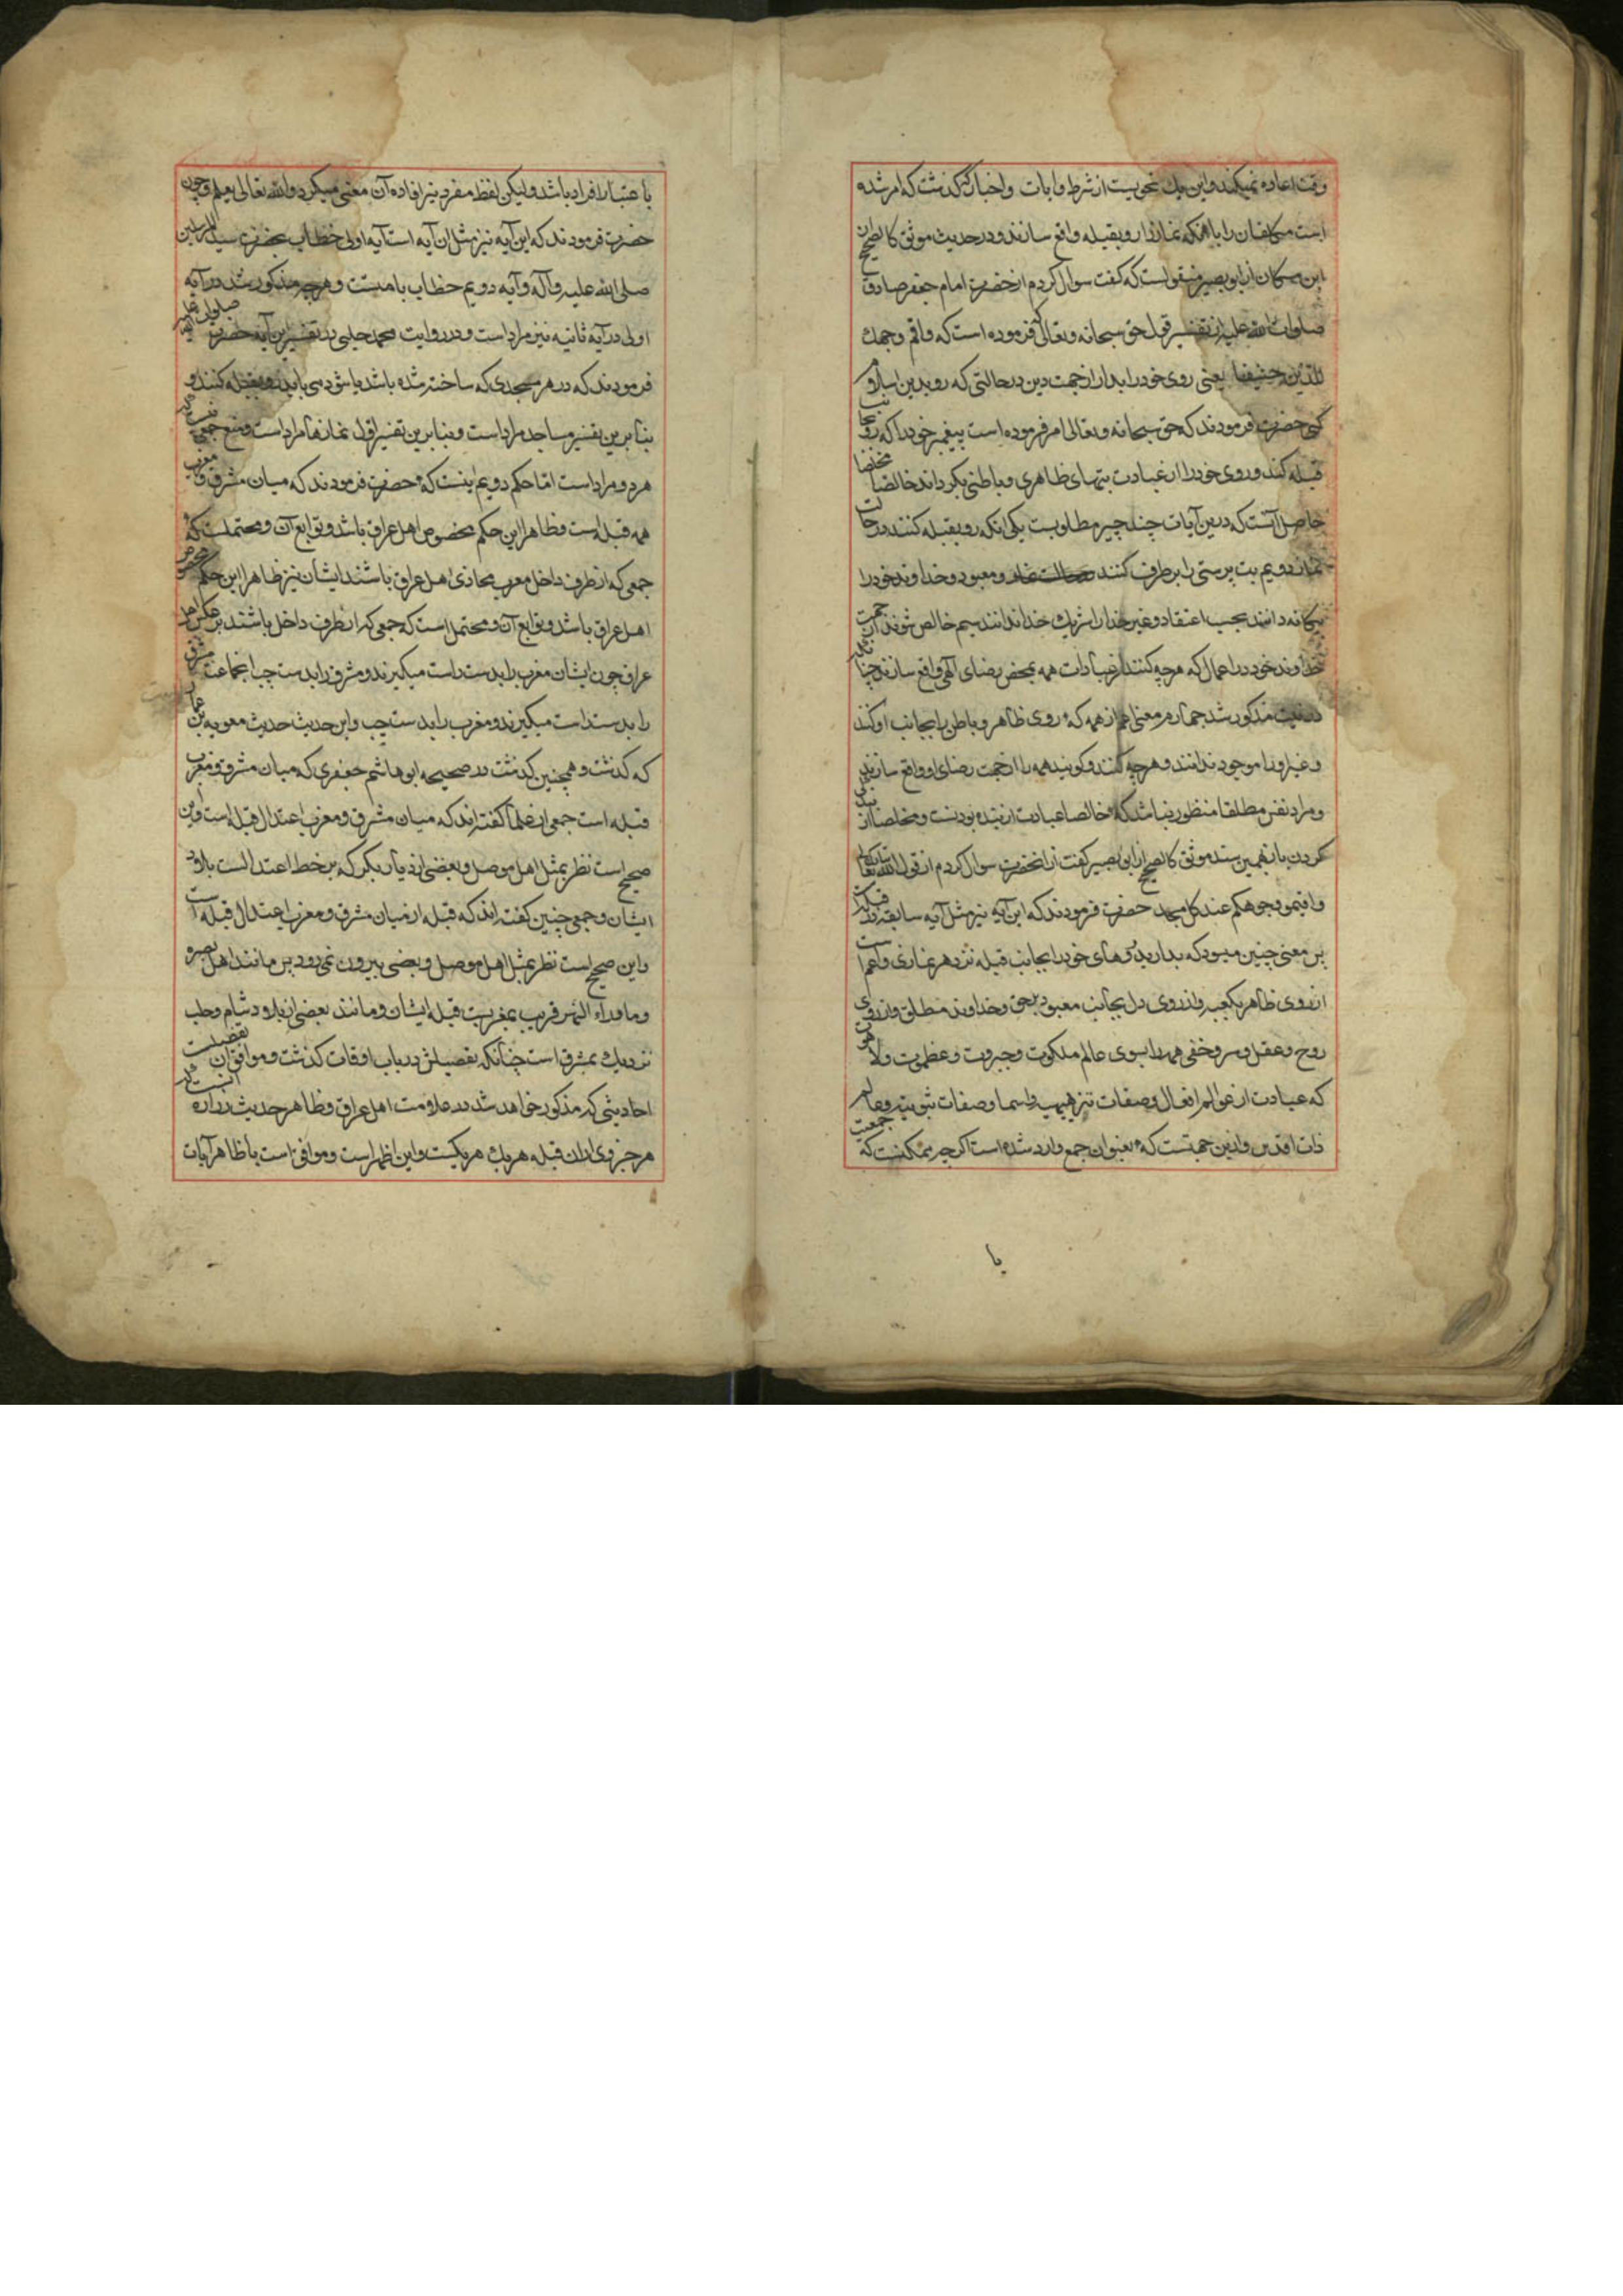 وقت اعاده نمیکند و این یک نحویست از شرط و ایات و اخبار که گذشت که امر شده
است مکلفان را باانکه نماز را رو بقبله واقع سازند و در حدیث موثق کالصحیح از
ابن مسکان از ابو بصیر منقولست که گفت سوال کردم از حضرت امام جعفر صادق
صلوات الله علیه از تفسیر قول حق سبحانه و تعالی که فرموده است که واقم وجهک
للدین حنیفا یعنی روی خود را بدار از جهت دین در حالتی که رو بدین اسلام
کنی حضرت فرمودند که حق سبحانه و تعالی امر فرموده است پیغمبر خود را که رو بجانب
قبله کنند و روی خود را از عبادت بتهای ظاهری و باطنی بگرداند خالصا مخلصا
حاصل آنست که درین آیات چند چیز مطلوبست یکی انکه رو بقبله کنند در حالت
نماز دویم بت پرستی را برطرف کنند و معبود و خداوند خود را
یکانه دانند بحسب اعتقاد و غیر خدا را شریک خدا ندانند سیم خالص شوند از جهت
خداوند خود در اعمال که هرچه کنند از عبادات همه بمحض رضای الهی واقع سازند چنانکه
در نیت مذکور شد چهارم معنی اعم از همه که روی ظاهر و باطن را بجانب او کنند
و غیر او را موجود ندانند و هرچه کنند و کویند همه را از جهت رضای او واقع سازند
و مراد نفس مطلقا منظور نباشد که خالصا عبادت از بنده بودنست و مخلصا از بندگی
کردن باز بهمین سند موثق کالصحیح از ابی بصیر گفت از انحضرت سوال کردم از قول الله تعالی
و اقیموا وجوهکم عند کل مسجد حضرت فرمودند که این آیه نیز مثل آیه سابقه در قبله است
پس معنی چنین میشود که بدارید روهای خود را بجانب قبله نزد هر نمازی و اعم است
از روی ظاهر بکعبه و از روی دل بجانب معبود بحق و خداوند مطلق و از روی
روح و عقل و سر و خفی همه را بسوی عالم ملکوت و جبروت و عظموت و لاهوت
که عبادت از عوالم افعال و صفات تنزیهیه و اسما و صفات ثبوتیه و عالم
ذات اقدس و ازین جهتست که بعنوان جمع وارد شده است اگرچه ممکنست که جمعیت
یا
باعتبار افراد باشد و لیکن لفظ مفرد نیز افاده آن معنی میکرد و الله تعالی یعلم و چون
حضرت فرمودند که این آیه نیز مثل ان آیه است آیه اولی خطاب بحضرت سید المرسلین
صلی الله علیه و آله و آیه دویم خطاب بامتست و هرچه مذکور شد در آیه
اولی در آیه ثانیه نیز مراد است و در روایت محمد حلبی در تفسیر این آیه حضرت صلوات الله علیه
فرمودند که در هر مسجدی که ساخته شده باشد یا شود می باید رو بقبله کنند و
بنابرین تفسیر مساجد مراد است و بنابرین تفسیر اول نمازها مراد است و منع جمعی نیست که
هر دو مراد است اما حکم دویم اینست که حضرت فرمودند که میان مشرق و مغرب
همه قبله است و ظاهرا این حکم مخصوص اهل عراق باشد و توابع آن و محتملست که
جمعی که از طرف داخل مغرب محاذی اهل عراق باشند ایشان نیز ظاهرا این حکم مخصوص
اهل عراق باشد و توابع آن و محتمل است که جمعی که از طرف داخل باشند بر عکس اهل
عراق چون ایشان مغرب را بدست راست میکیرند و مشرق را بدست چپ انجماعت مشرق
را بدست راست میکیرند و مغرب را بدست چپ و این حدیث حدیث معویه بن عمار
که گذشت و همچنین گذشت در صحیحه ابو هاشم جعفری که میان مشرق و مغرب
قبله است جمعی از علما کفته اند که میان مشرق و مغرب اعتدال قبله است و این
صحیح است نظر بمثل اهل موصل و بعضی از دیار بکر که بر خط اعتدالست بلاد
ایشان و جمعی چنین کفته اند که قبله از میان مشرق و مغرب اعتدال قبله است
و این صحیح است نظر بمثل اهل موصل و بعضی بیرون نمی رود پس مانند اهل بصره
و ماوراء النهر قریب بمغربست قبله ایشان و مانند بعضی از بلاد شام و حلب
نزدیک بمشرق است چنانکه تفصیلش در باب اوقات گذشت و موافق ان تفصیلست
احادیثی که مذکور خواهد شد در علامت اهل عراق و ظاهر حدیث زراره اینست که
هر جزوی ازان قبله هر یک هر یکیست و این اظهر است و موافق است با ظاهر آیات